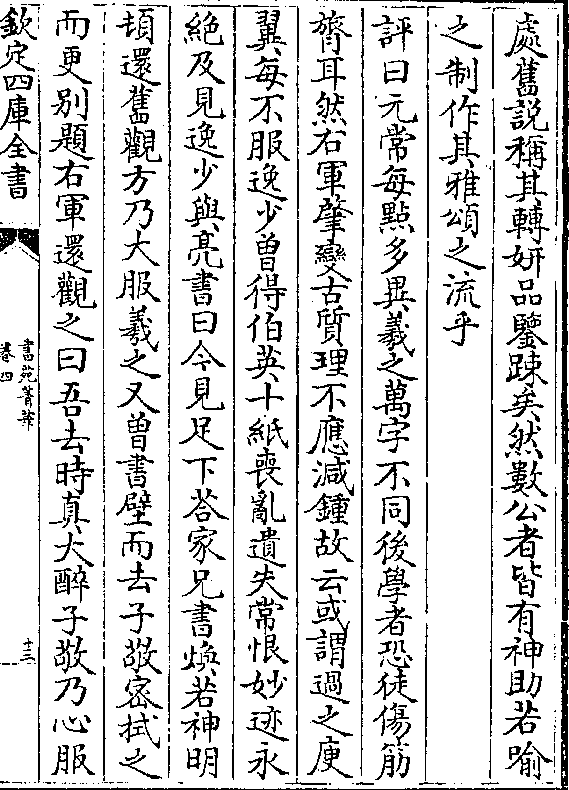 處舊説稱其轉妍品鑒踈矣然數公者皆有神助若喻
之制作其雅頌之流乎
評曰元常每點多異羲之萬字不同後學者恐徒傷筋
膂耳然右軍肇變古質理不應減鍾故云或謂過之庾
翼每不服逸少曾得伯英十紙喪亂遺失常恨妙迹永
絶及見逸少與亮書曰今見足下荅家兄書煥若神明
頓還舊觀方乃大服羲之又曾書壁而去子敬密拭之
而更别題右軍還觀之曰吾去時真大醉子敬乃心服
欽定四庫全書
書苑菁華
卷四
十三